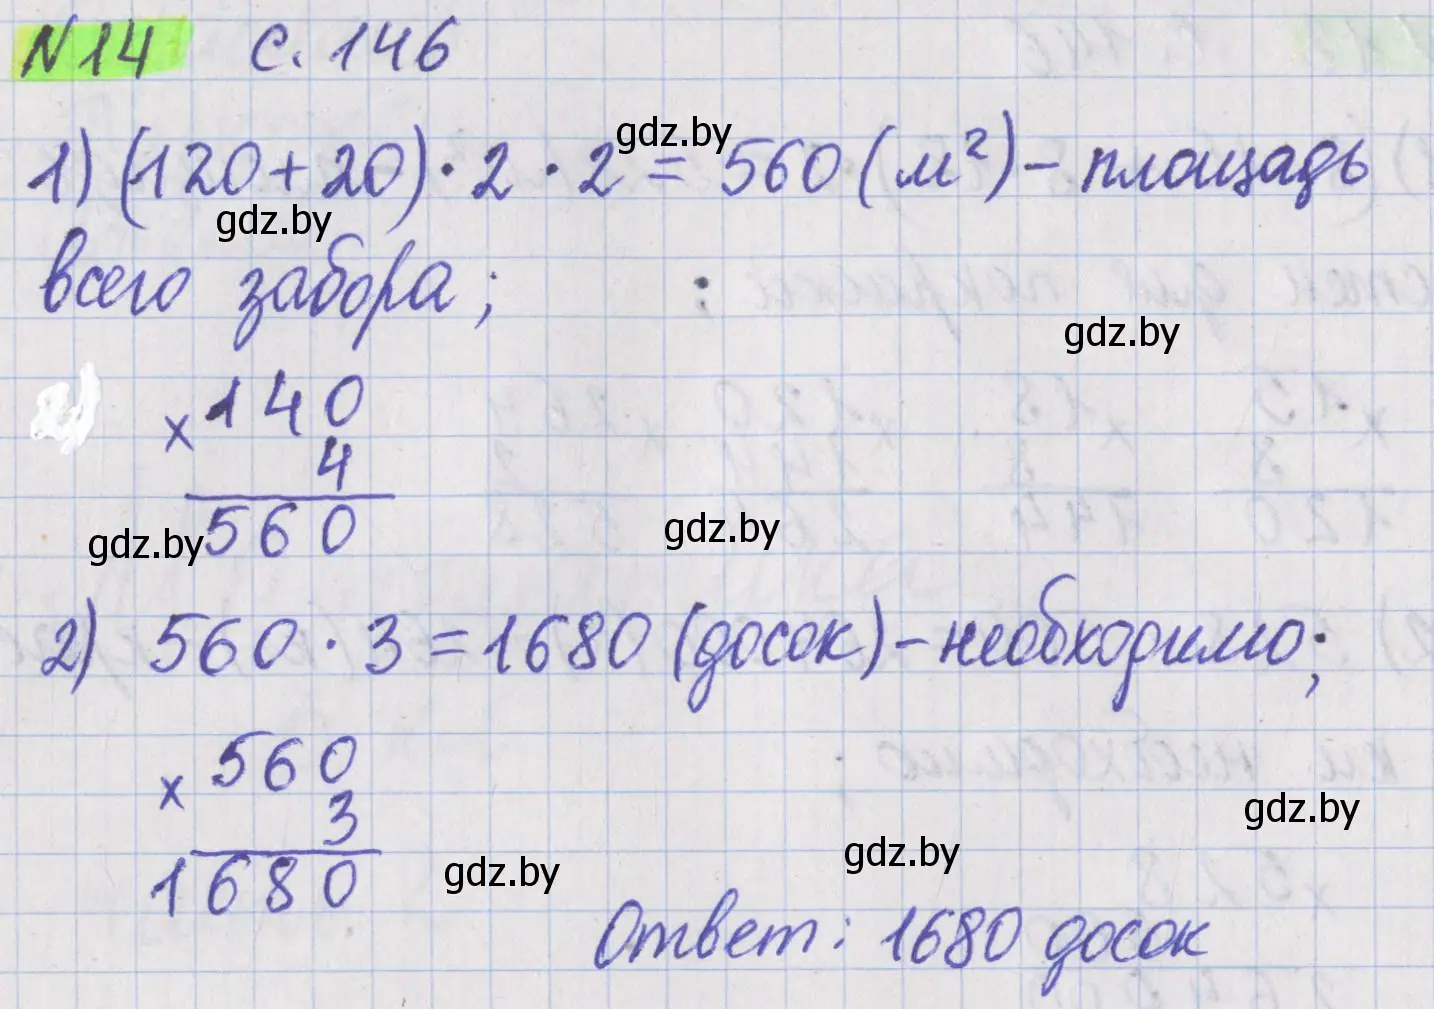 N14 с. 146
1) (120+20)·2·2 = 560 (м²) – площадь
всего забора;
× 140
4
560
2) 560 · 3 = 1680 (досок) – необходимо;
× 560
3
1680
Ответ: 1680 досок
gdz.by
gdz.by
gdz.by
gdz.by
gdz.by
gdz.by
gdz.by
gdz.by